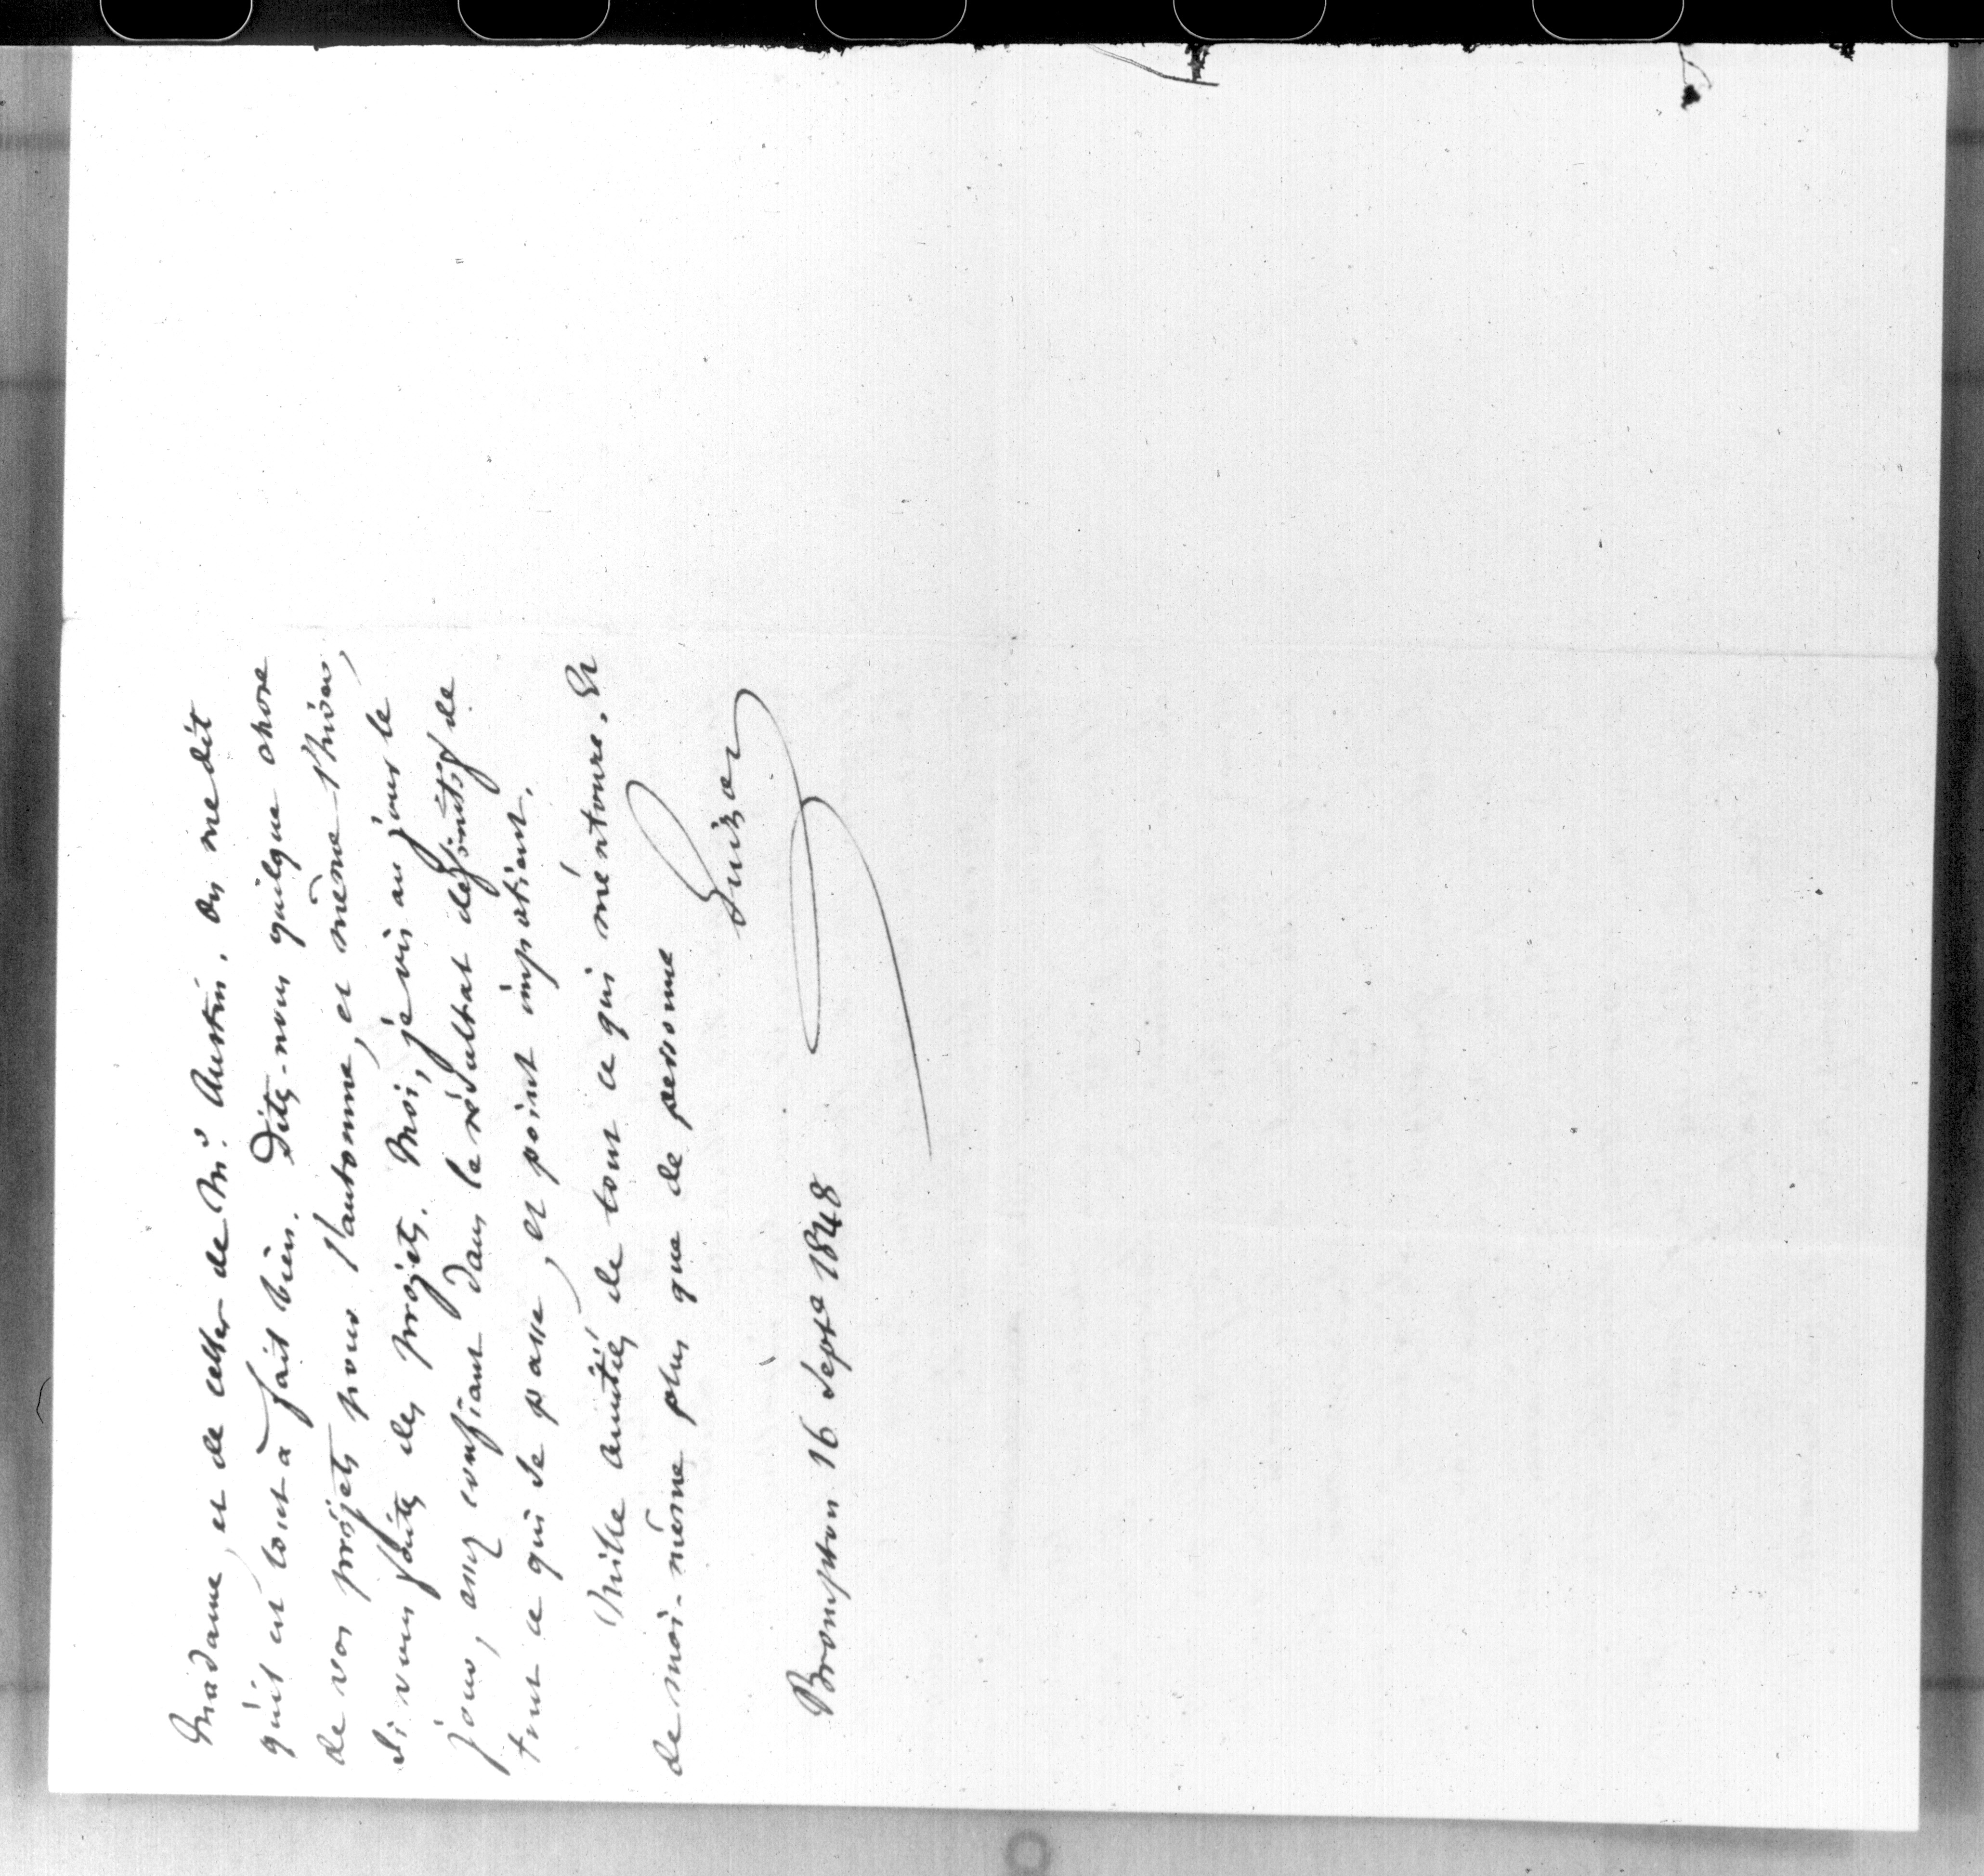 Madame, et de celles de Mr. Austin. On me dit
qu'il est tout à fait bien. Dites-nous quelque chose
de vos projets pour l'automne, et même l'hiver,
si vous faites des projets. Moi, je vis au jour le
jour, assez confiant dans le résultat définitif de
tout ce qui se passe, et point impatient.
Mille amitiés de tout ce qui m'entoure. Et
de moi-même plus que de personne
Guizot
Brompton 16 Septe 1848